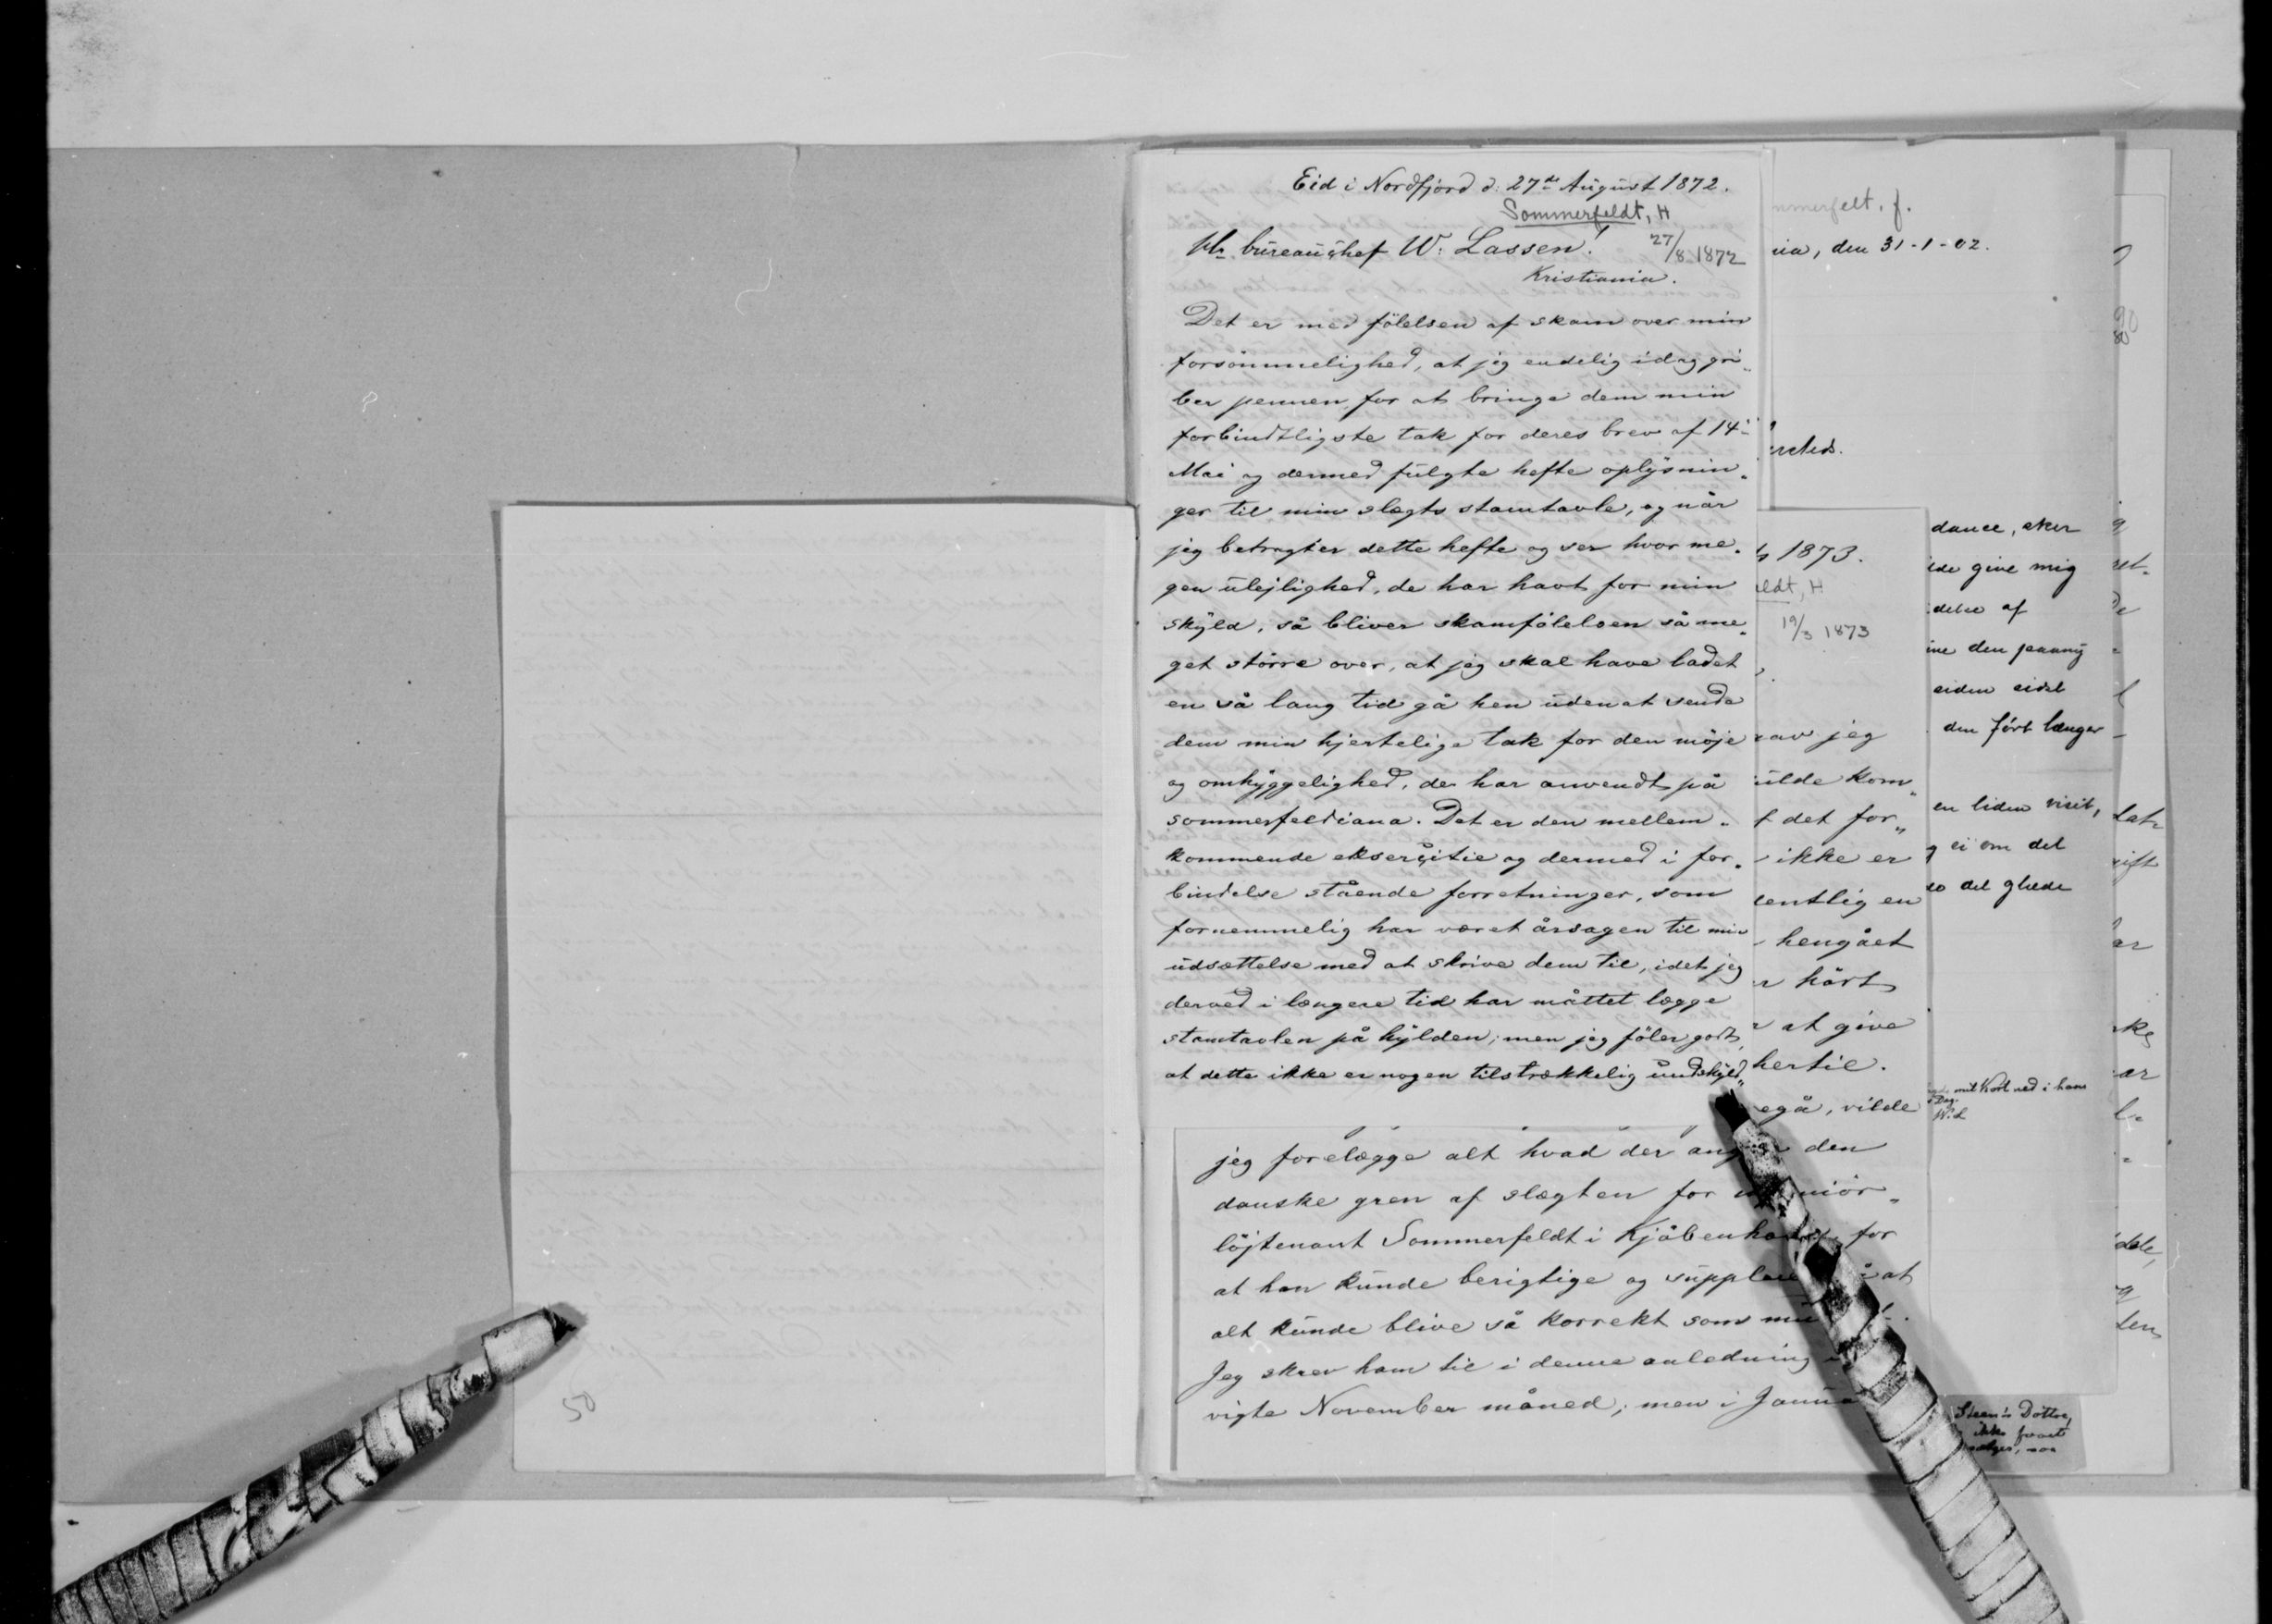 Eid i Nordfjord d. 27de August 1872.
Sommerfeldt, H
27/8 1872
Hr bureauchef W. Lassen!
Kristiania.
Det er med fölelsen af skam over min
forsömmelighed, at jeg endelig idag gri„
ber pennen for at bringe dem min
forbindtligste tak for deres brev af 14de
Mai og dermed fulgte hefte oplysnin„
ger til min slægts stamtavle, og når
jeg betragter dette hefte og ser hvor me„
gen ulejlighed, de har havt for min
skyld, så bliver skamfölelsen så me„
get större over, at jeg skal have ladet
en så lang tid gå hen uden at sende
dem min hjertelige tak for den möje
og omhyggelighed, de har anvendt på
sommerfeldiana. Det er den mellem„
kommende ekserçitie og dermed i for„
bindelse stående forretninger, som
fornemmelig har været årsagen til min
udsættelse med at skrive dem til, idet jeg
derved i længere tid har måttet lægge
stamtavlen på hylden; men jeg föler godt,
at dette ikke er nogen tilstrækkelig undskyld„
jeg forelægge alt hvad der den
danske gren af slægten for
löjtenant Sommerfeldt i for
at han kunde berigtige og at
alt kunde blive så korrekt som
Jeg skrev ham til i denne anledning
vigte November måned; men i
50
1873.
eldt, H
19/3 1873
rav jeg
ulde kom„
f det for„
ikke er
entlig en
hengået
r hört
at give
hertil.
egå, vilde
mmerfelt, f.
nia, den 31-1-02.
dance, eker
ilde give mig
delse af
ine den paany
eiden eidet
den fört længer
en liden visit,
g ei om det
so det glæde
mit Kort ned i hans
Dag.
W. L
Steen's Dötre,
ikke